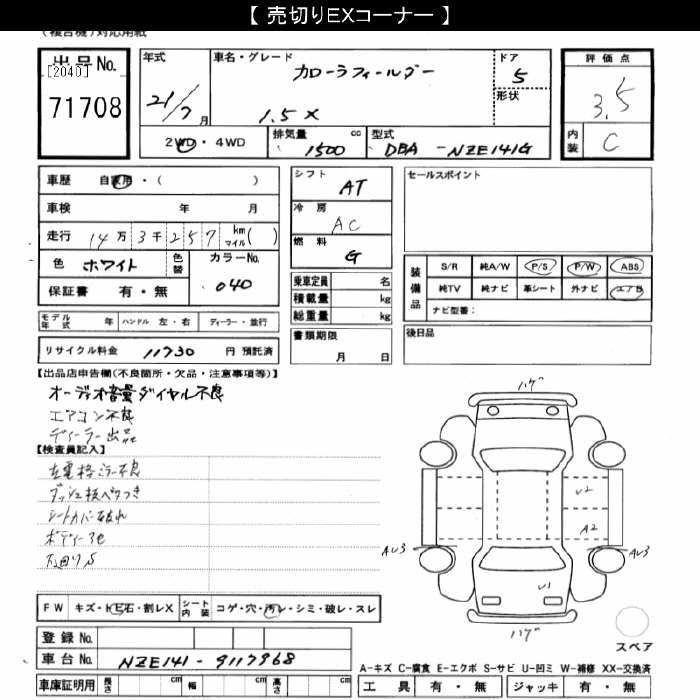 【 売切りEXコーナー 】
(複合機)対応用紙
出品No.
[2040]
71708
年式
21/7月
車名・グレード
カローラフィールダー
1.5 X
ドア
5
形状
2WD・4WD
排気量 1500 cc
型式 DBA - NZE141G
評価点
3.5
内装 C
車歴 自家用・( )
車検 年 月
走行 14万3千257 km マイル( )
色 ホワイト 色替 カラーNo. 040
保証書 有・無
シフト AT
冷房 AC
燃料 G
乗車定員 名
積載量 kg
総重量 kg
書類期限
月 日
セールスポイント
装備品
S/R 純A/W P/S P/W ABS
純TV 純ナビ 革シート 外ナビ エアB
ナビ型番:
後日品
モデル年式 年 ハンドル 左・右 ディーラー・並行
リサイクル料金 11730 円 預託済
【出品店申告欄(不良箇所・欠品・注意事項等)】
オーディオ音量ダイヤル不良
エアコン不良
ディーラー出品
【検査員記入】
左電格ミラー不良
ダッシュ板ベタつき
シートカバー破れ
ボディー
FW キズ・ヒ石・割レX シート内装 コゲ・穴・汚レ・シミ・破レ・スレ
登録No.
車台No. NZE141-9117968
車庫証明用 長さ cm 幅 cm 高さ cm
ハゲ
U2
A2
AU3
AU3
U1
ハゲ
スペア
A-キズ C-腐食 E-エクボ S-サビ U-凹ミ W-補修 XX-交換済
工具 有・無 ジャッキ 有・無